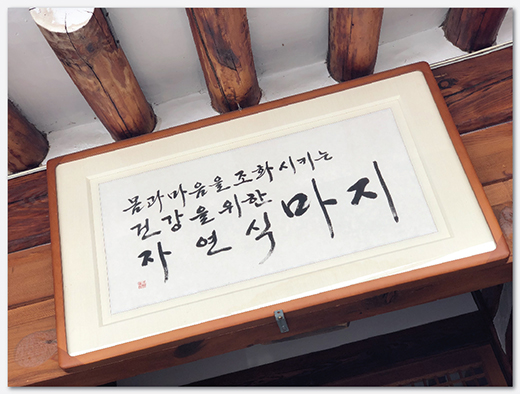 몸과마음을 조화시키는
건강을 위한
자연식 마지